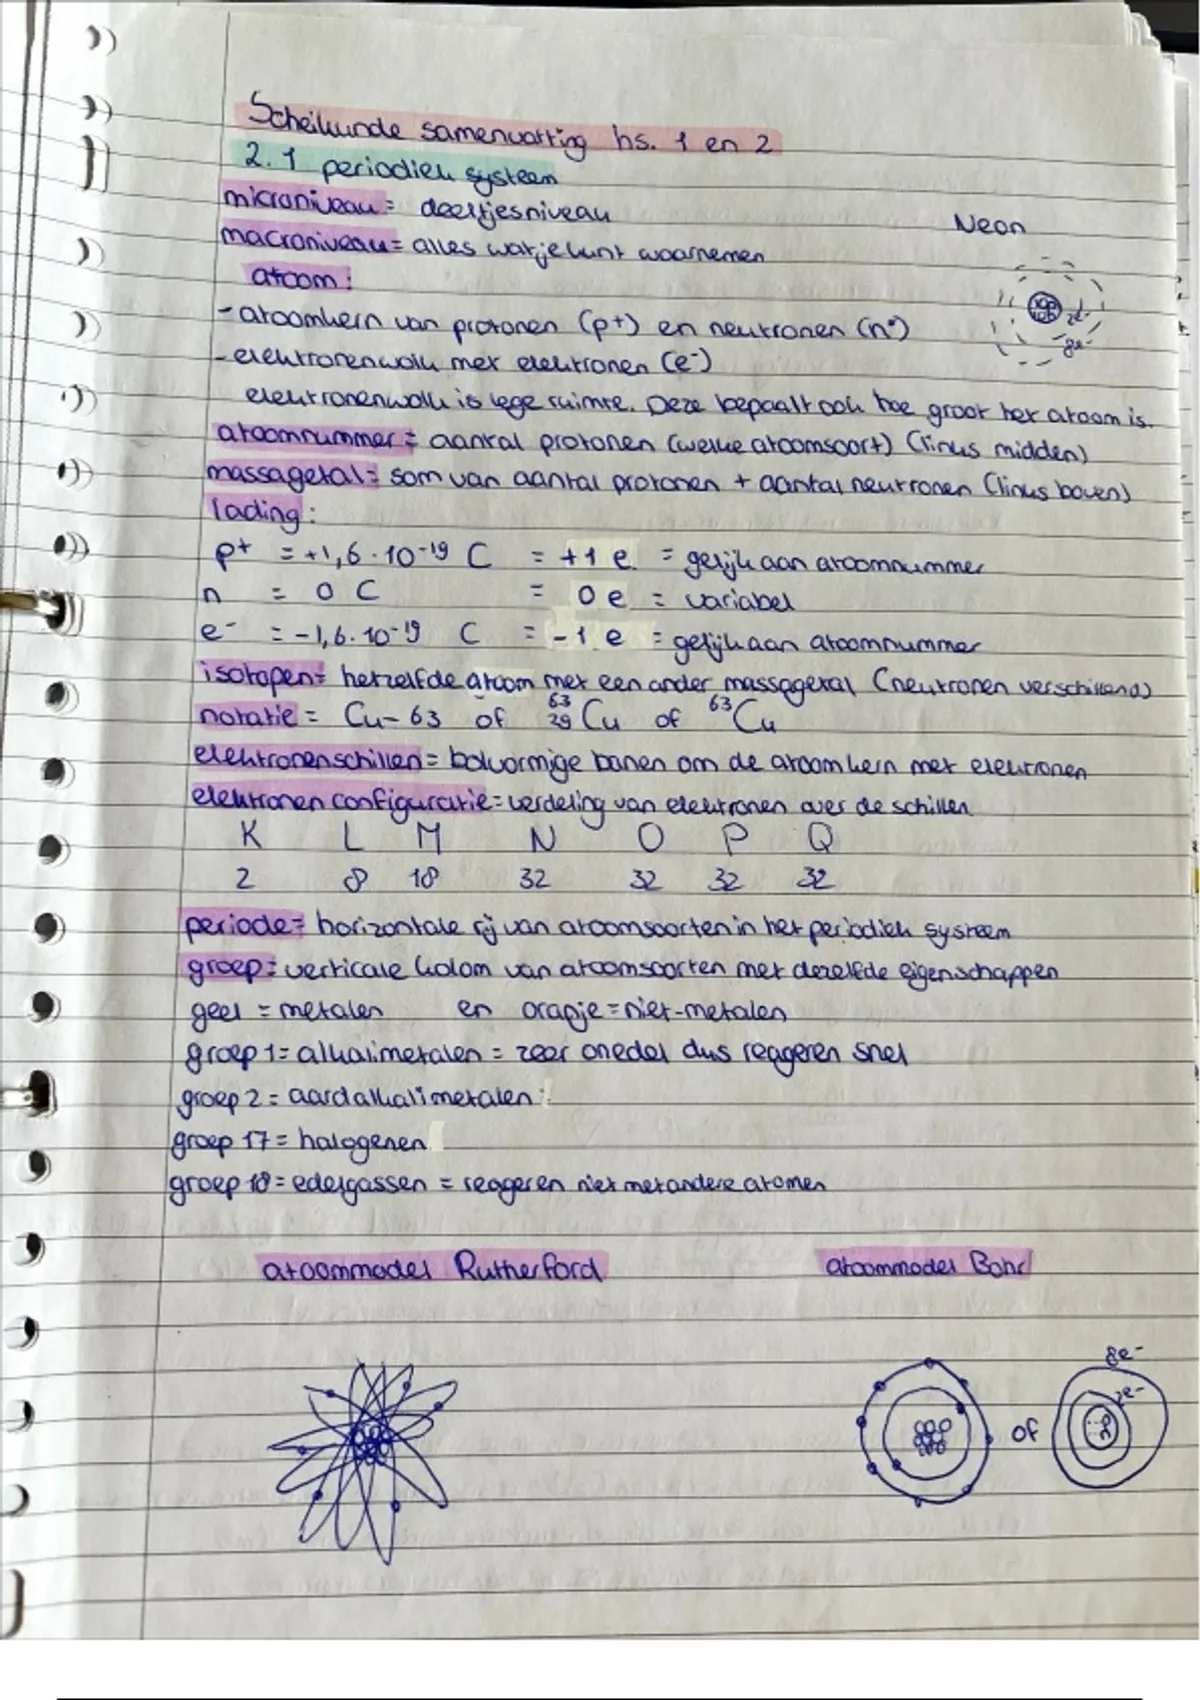 Scheikunde samenvatting hs. 1 en 2
2.1 periodiek systeem
microniveau = deeltjesniveau
Neon
macroniveau = alles wat je kunt waarnemen
atoom:
- atoomkern van protonen (p+) en neutronen (n°)
2e-
8e-
- elektronenwolk met elektronen (e-)
elektronenwolk is lege ruimte. Deze bepaalt ook hoe groot het atoom is.
atoomnummer = aantal protonen (welke atoomsoort) (linus midden)
massagetal = som van aantal protonen + aantal neutronen (linus boven)
lading:
p+ = +1,6 · 10-19 C = +1 e = gelijk aan atoomnummer
n = 0 C = 0 e = variabel
e- = -1,6 · 10-19 C = -1 e = gelijk aan atoomnummer
isotopen = hetzelfde atoom met een ander massagetal (neutronen verschillend)
notatie = Cu-63 of 63 29 Cu of 63Cu
elektronenschillen = bolvormige banen om de atoomkern met elektronen
elektronen configuratie = verdeling van elektronen over de schillen
K L M N O P Q
2 8 18 32 32 32 32
periode = horizontale rij van atoomsoorten in het periodiek systeem
groep = verticale kolom van atoomsoorten met dezelfde eigenschappen
geel = metalen en oranje = niet-metalen
groep 1 = alkalimetalen = zeer onedel dus reageren snel
groep 2 = aardalkalimetalen :
groep 17 = halogenen
groep 18 = edelgassen = reageren niet met andere atomen
atoommodel Rutherford atoommodel Bohr
8e-
2e-
of
p
n